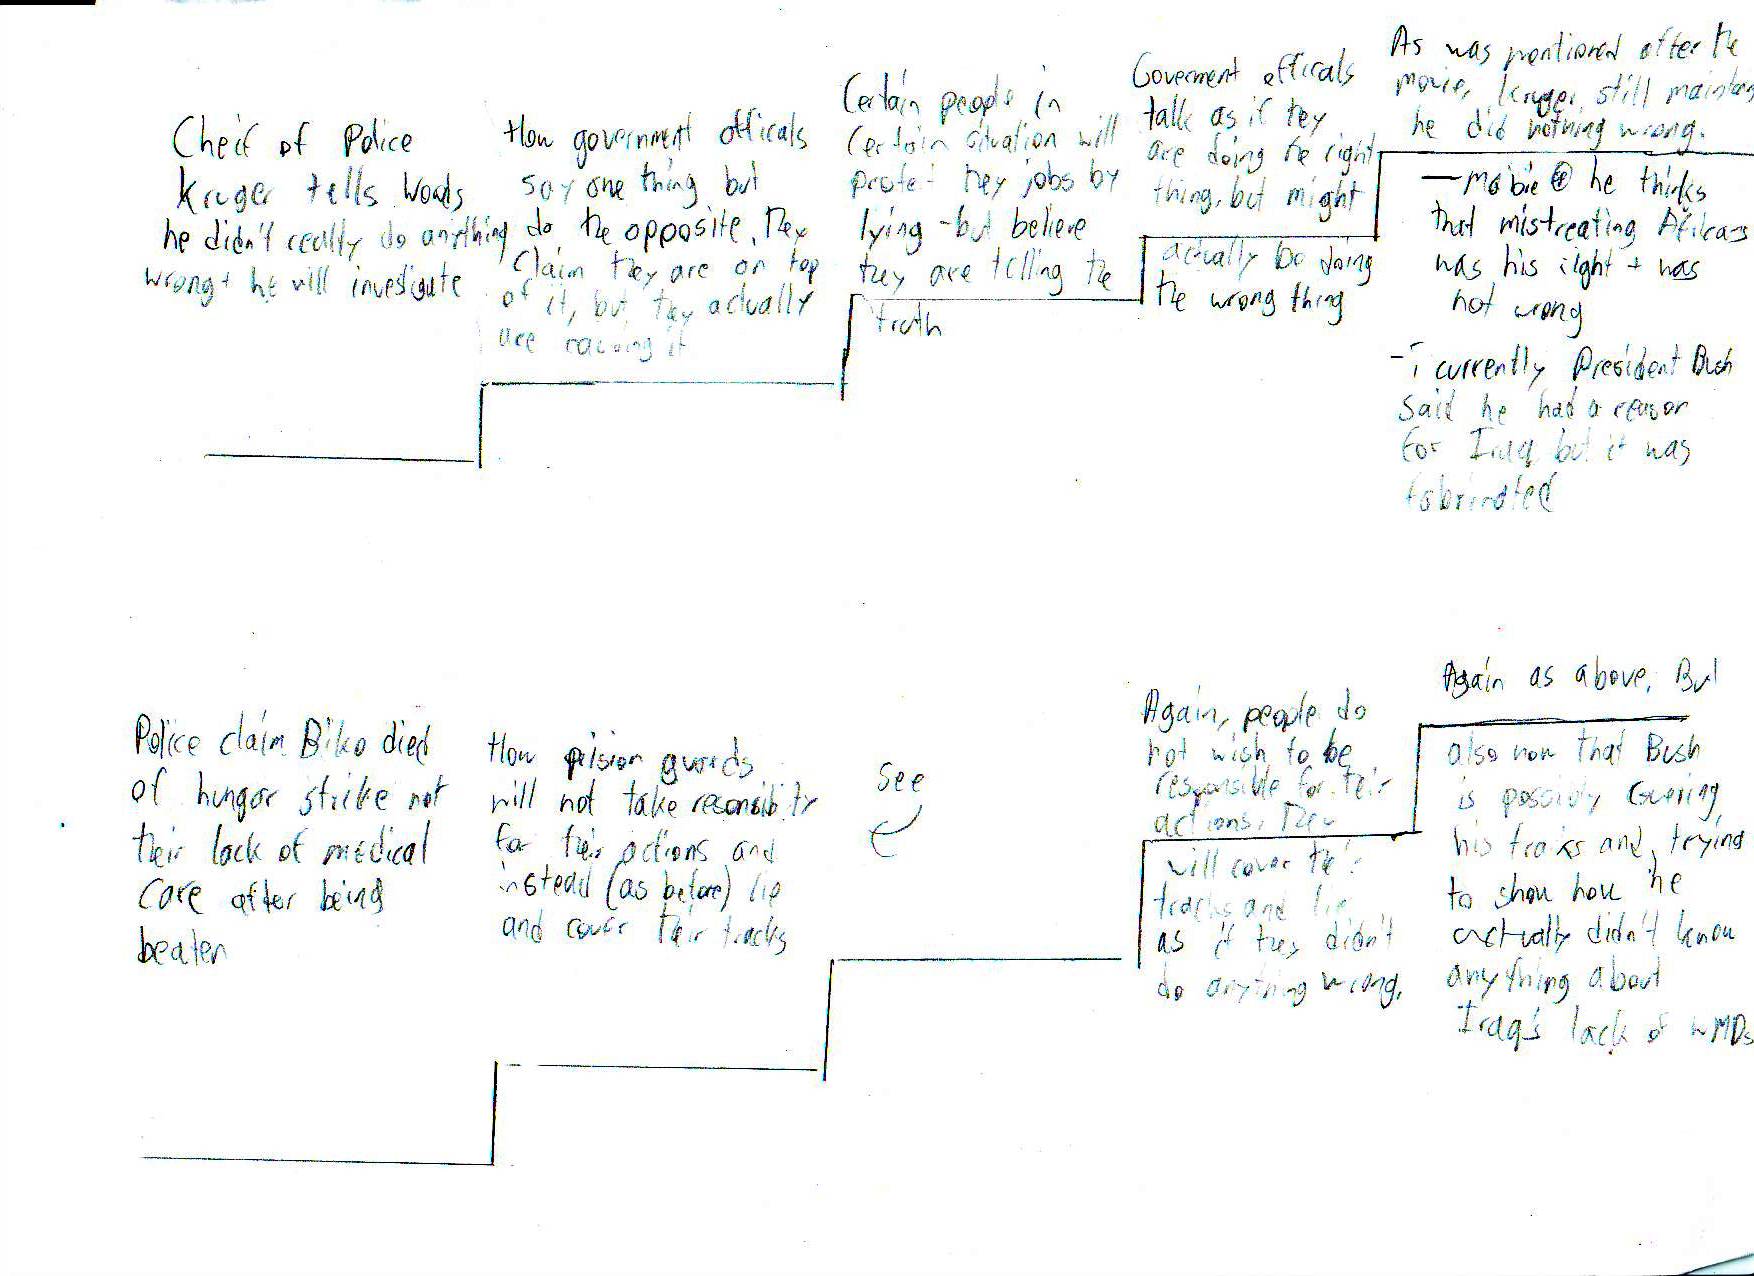 Cheif of Police
Kruger tells Woods
he didn't really do anything
wrong + he will investigate
How government officals
say one thing but
do the opposite. They
claim they are on top
of it, but they actually
are causing it
Certain people in
certain situation will
protect they jobs by
lying - but believe
they are telling the
truth
Goverment officals
talk as if they
are doing the right
thing, but might
actually be doing
the wrong thing
As was mentioned after the
movie, Kruger, still maintains
he did nothing wrong.
- mabie he thinks
that mistreating Africans
was his right + was
not wrong
- currently President Bush
said he had a reason
for Iraq but it was
fabricated
Police claim Biko died
of hungar strike not
their lack of medical
care after being
beaten
How prision guards
will not take reconsibilty
for their actions and
instead (as before) lie
and cover their tracks
See
Again, people do
not wish to be
responsible for their
actions. They
will cover their
tracks and lie
as if they didn't
do anything wrong.
Again as above, But
also now that Bush
is possibly covering
his tracks and, trying
to show how he
actually didn't know
anything about
Iraq's lack of WMDs